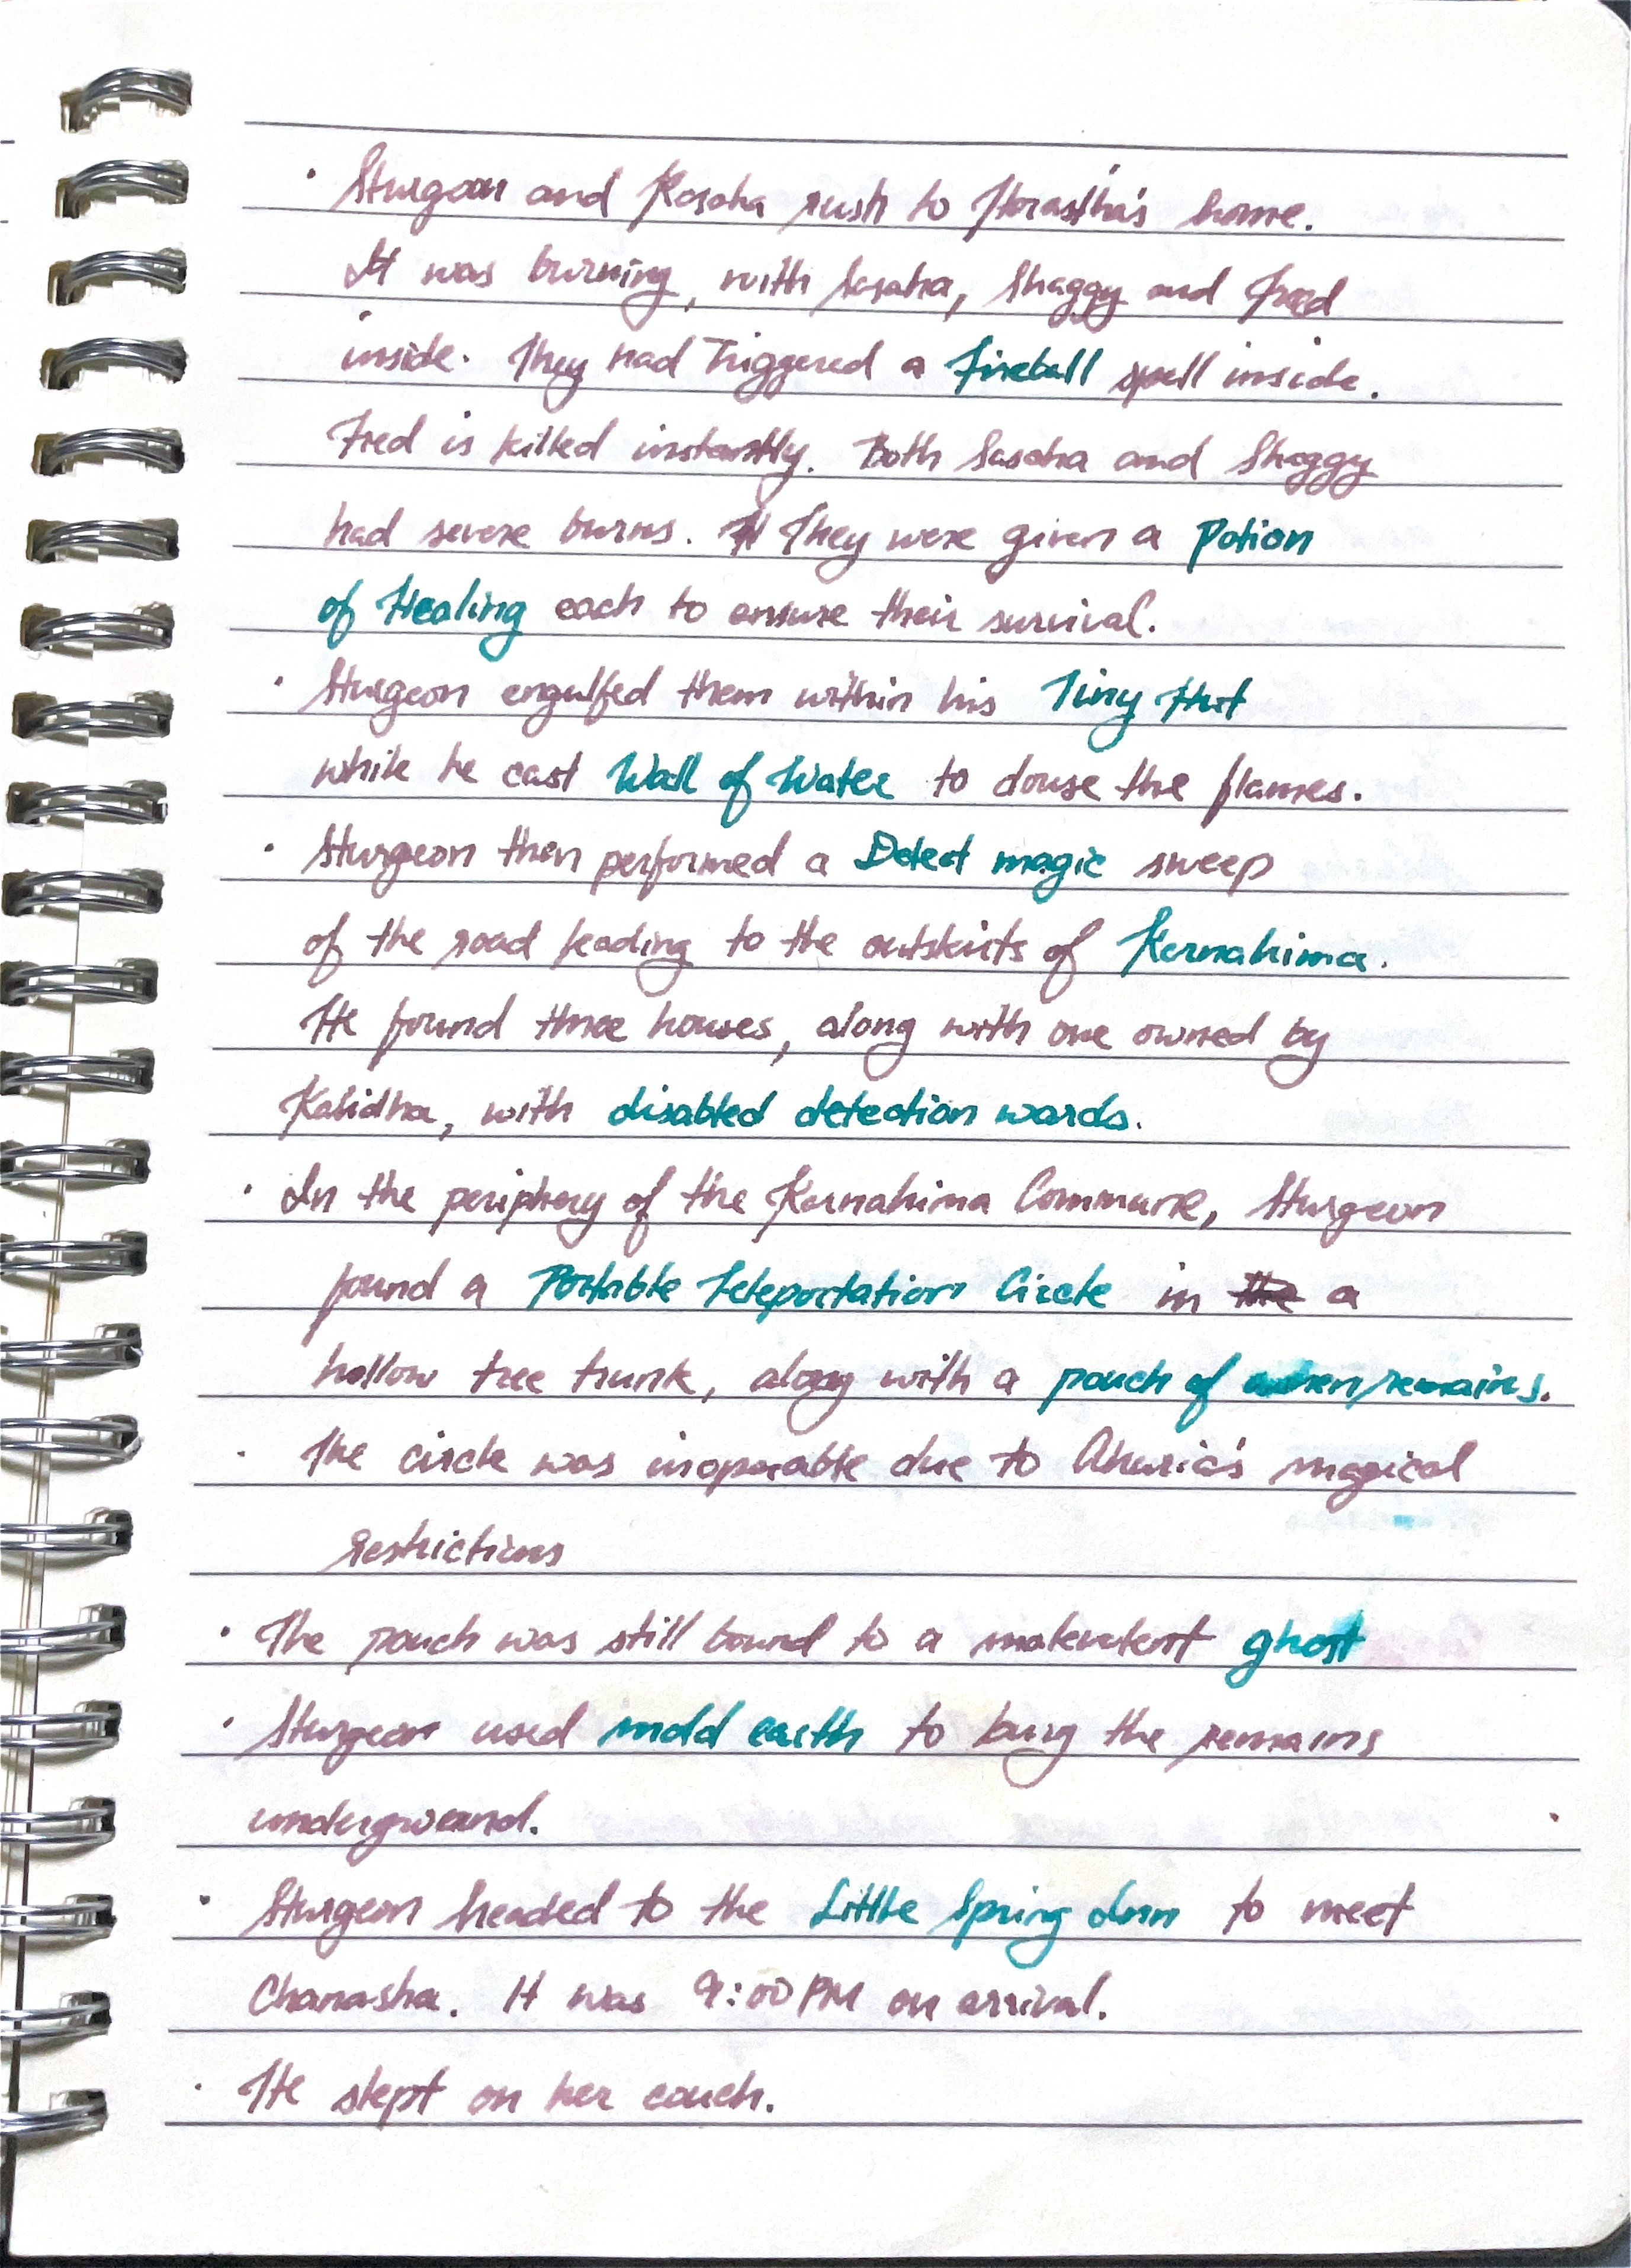 · Sturgeon and Kosaha rush to Horastha's home.
It was burning, with Sasaha, Shaggy and Fred
inside. They had Triggered a Fireball spell inside.
Fred is killed instantly. Both Sasaha and Shaggy
had severe burns. They were given a Potion
of Healing each to ensure their survival.
· Sturgeon engulfed them within his Tiny Hut
while he cast Wall of Water to douse the flames.
· Sturgeon then performed a Detect magic sweep
of the road leading to the outskirts of Karnahima.
He found three houses, along with one owned by
Kalidha, with disabled detection wards.
· In the periphery of the Karnahima Commune, Sturgeon
found a Portable Teleportation Circle in a
hollow tree trunk, along with a pouch of remains.
· The circle was inoperable due to Ahuria's magical
restrictions
· The pouch was still bound to a malevolent ghost
· Sturgeon used mold earth to bury the remains
underground.
· Sturgeon headed to the Little Spring Inn to meet
Chanasha. It was 9:00 PM on arrival.
· He slept on her couch.